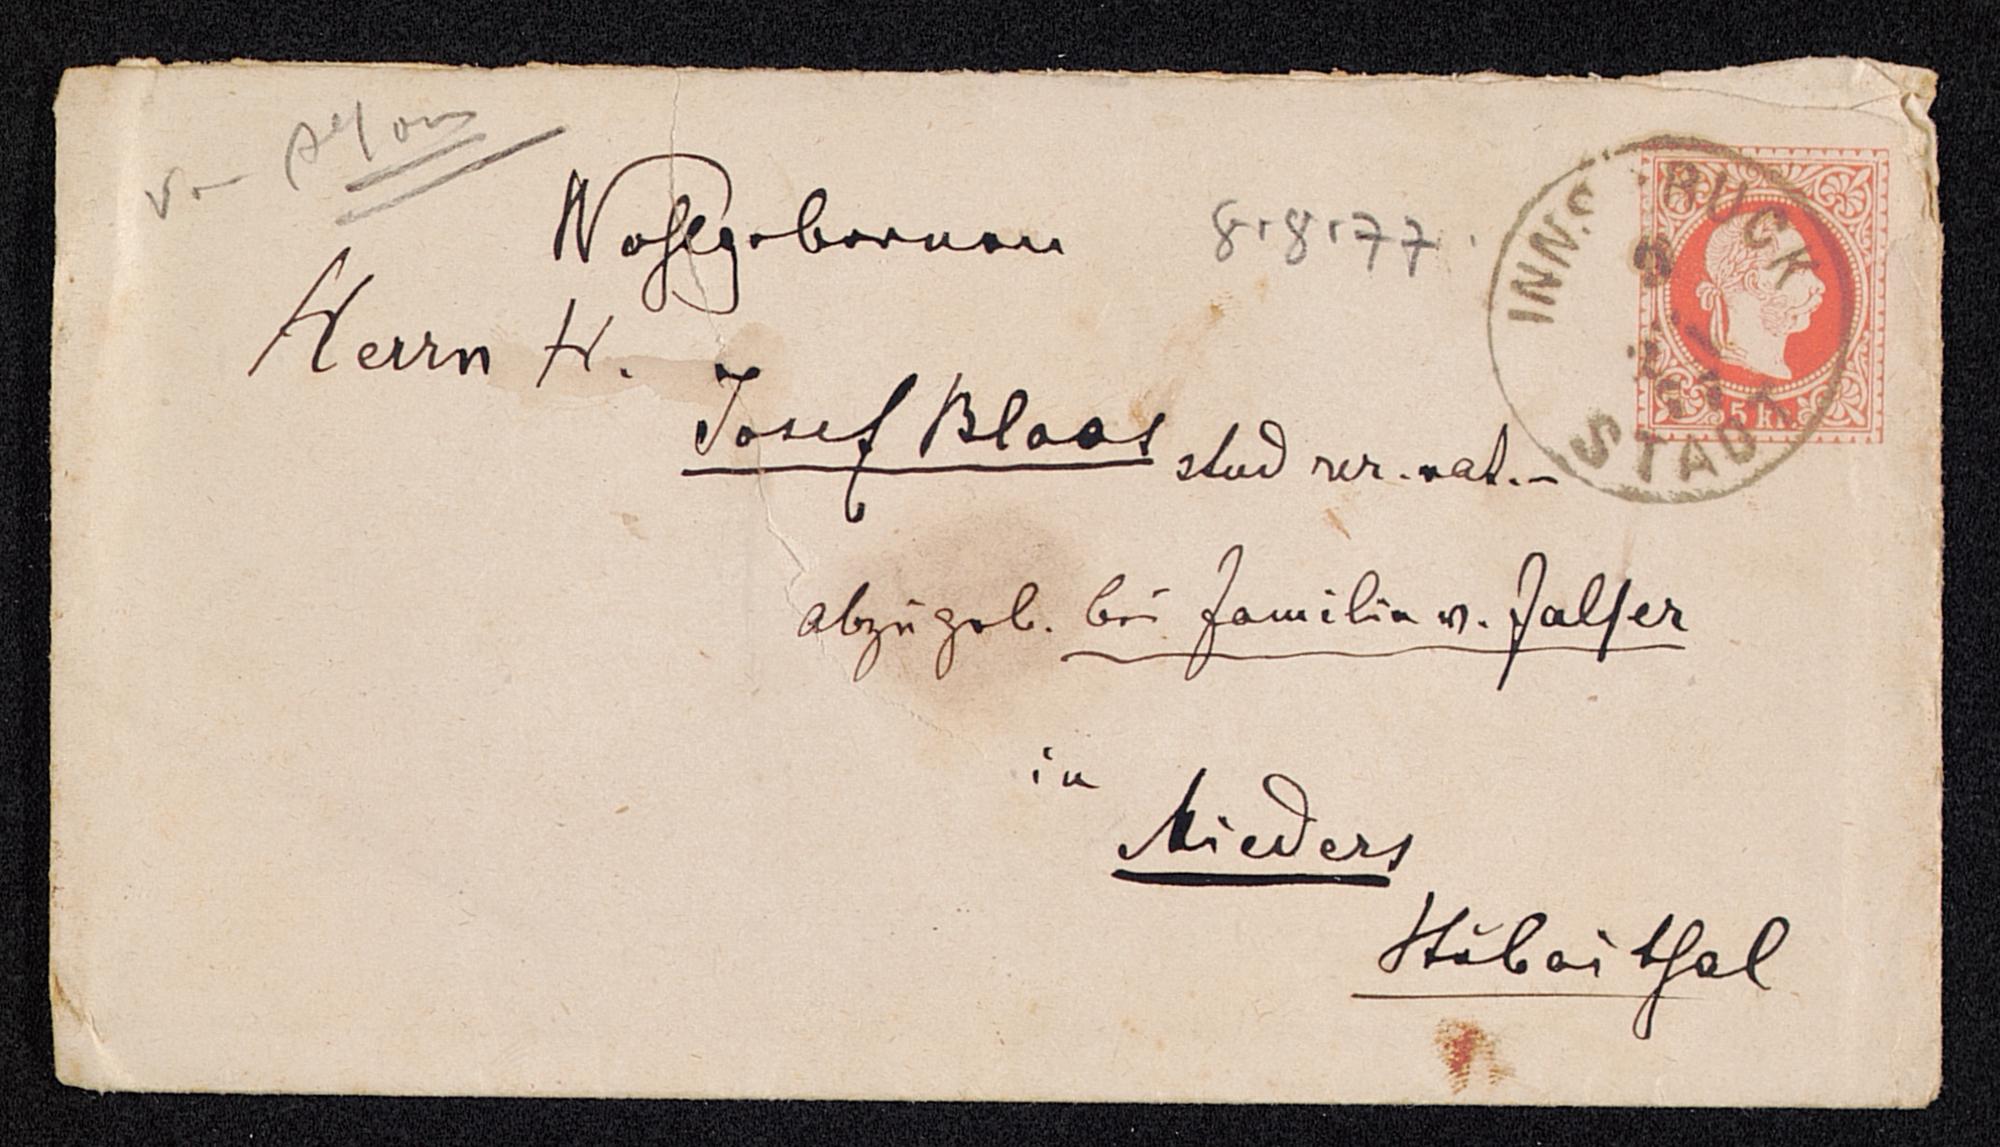 von Alfons
8.8.77.
Wohlgeboren
Herrn H.
Josef Blaas stud rer. nat. –
abzugeb. bei Familie v. Zalser
in
Mieders
Stubaithal
INNSBRUCK
STADT
5 kr